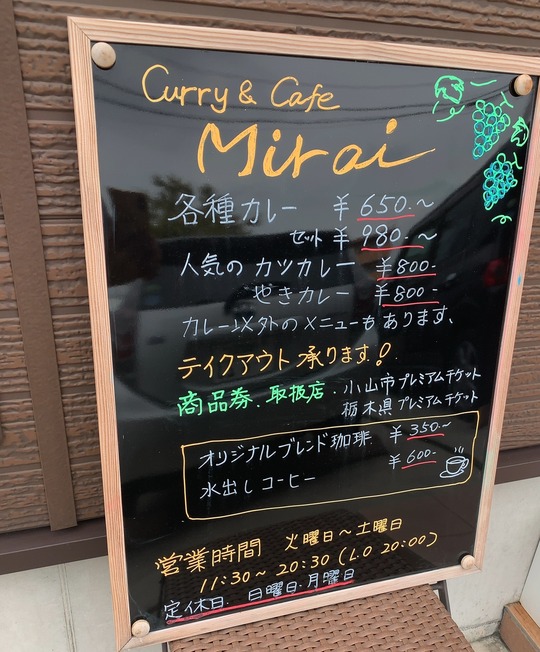 Curry & Cafe
Mirai
各種カレー ¥650.～
セット ¥980.～
人気のカツカレー ¥800-
やきカレー ¥800-
カレー以外のメニューもあります、
テイクアウト承ります!
商品券.取扱店・小山市プレミアムチケット
栃木県プレミアムチケット
オリジナルブレンド珈琲. ¥350.～
水出しコーヒー ¥600-
営業時間 火曜日～土曜日
11:30～20:30(L.O 20:00)
定休日. 日曜日.月曜日